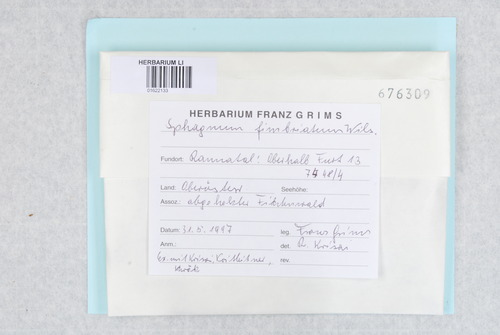 HERBARIUM LI
01622133
676309
HERBARIUM FRANZ GRIMS
Sphagnum fimbriatum Wils.
Fundort: Rannatal: Oberhalb Furt 13
7448/4
Land: Oberösterr Seehöhe:
Assoz.: abgeholzter Fichtenwald
Datum: 31.5.1997 leg. Franz Grims
Anm.: det. Dr. Krisai
Ex. mit Krisai, rev.